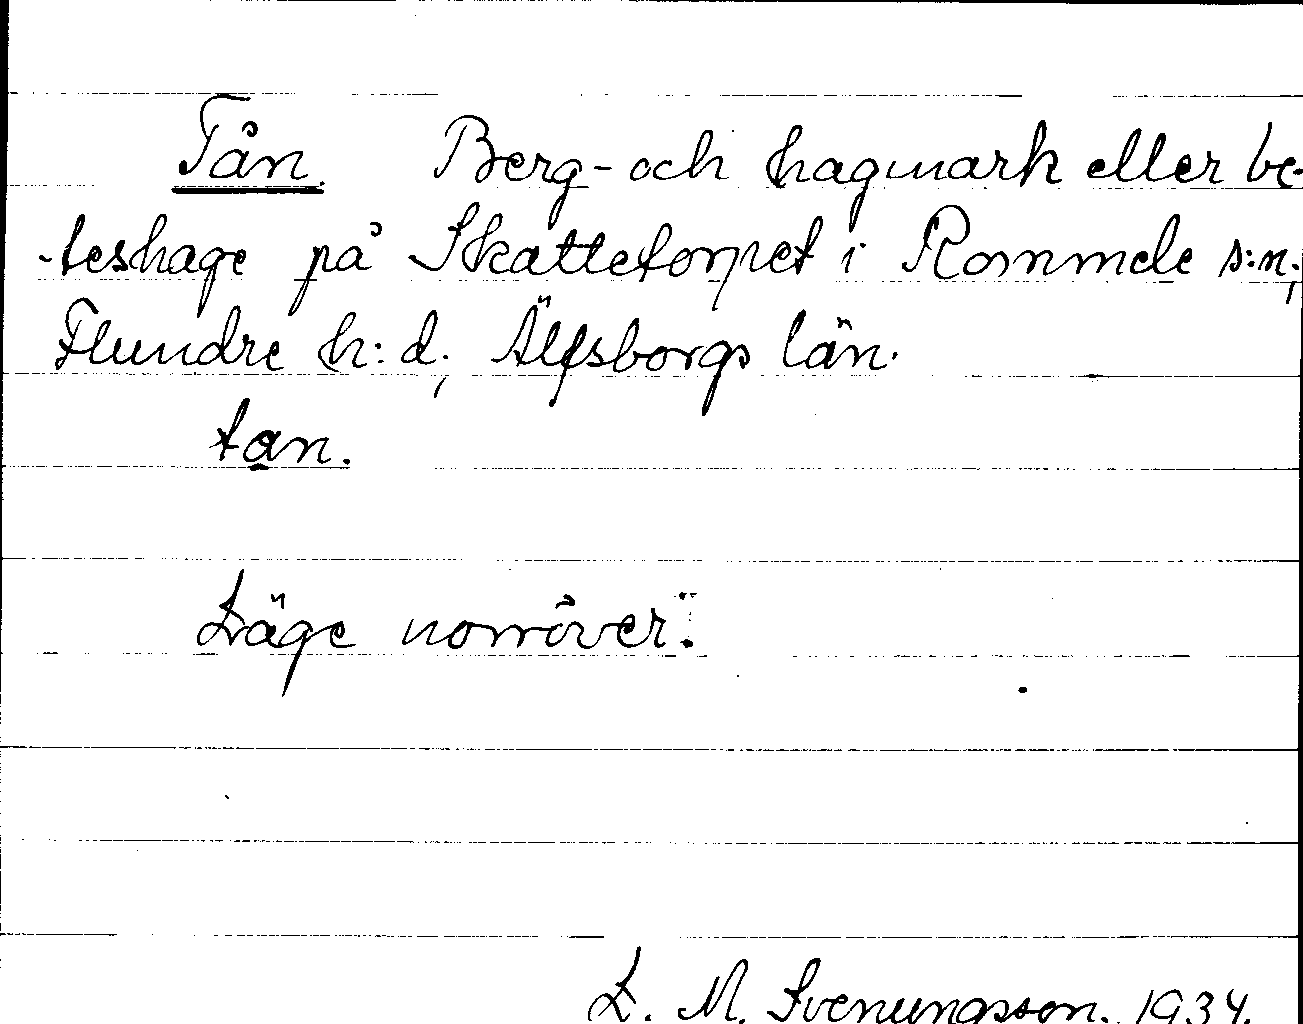 Tån. Berg- och hagmark eller be-
-teshage på Skattetorpet i Rommele s:n,
Flundre h:d, Älfsborgs län.
tan.
Läge norröver.
L. M. Svenungsson. 1934.